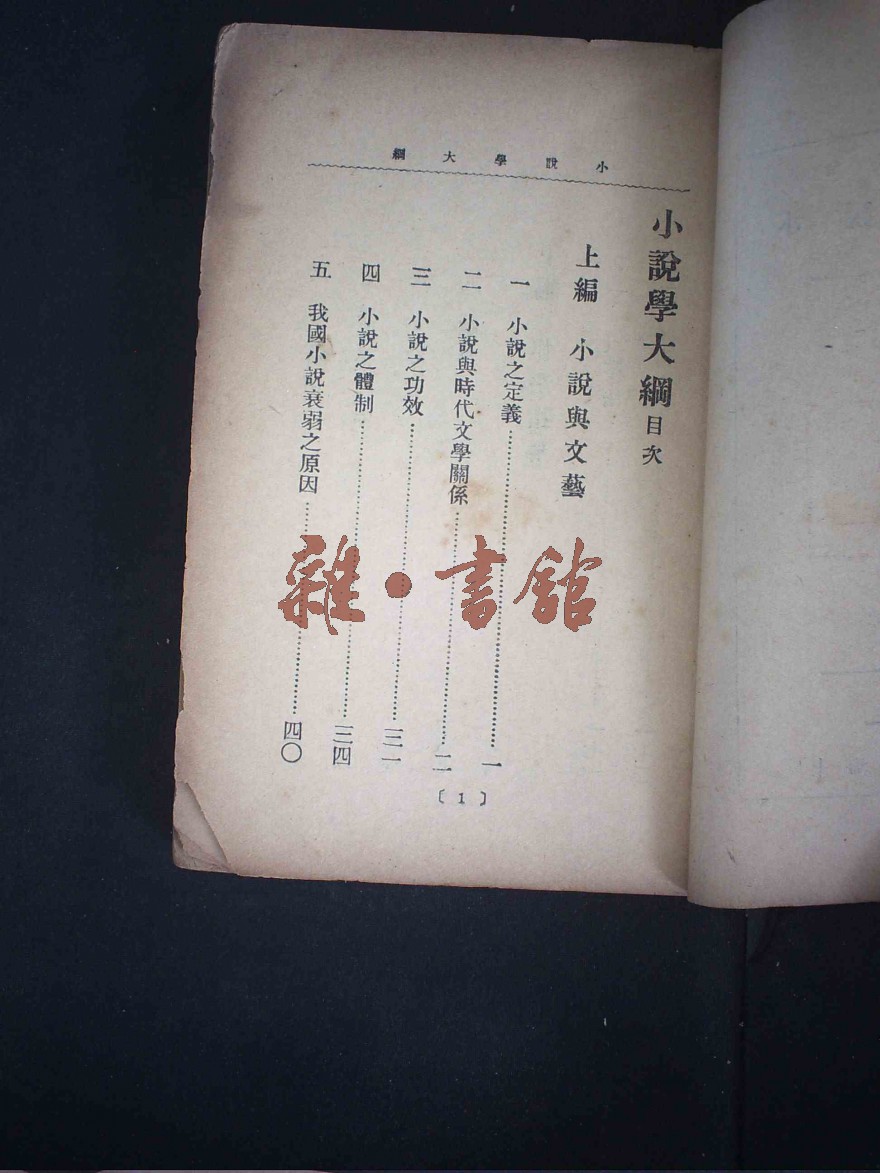 小說學大綱
小說學大綱目次
上編　小說與文藝
一　小說之定義⋯⋯⋯⋯⋯⋯⋯⋯一
二　小說與時代文學關係⋯⋯⋯⋯⋯⋯⋯⋯二
三　小說之功效⋯⋯⋯⋯⋯⋯⋯⋯三一
四　小說之體制⋯⋯⋯⋯⋯⋯⋯⋯三四
五　我國小說衰弱之原因⋯⋯⋯⋯⋯⋯⋯⋯四〇
〔1〕
雜·書館